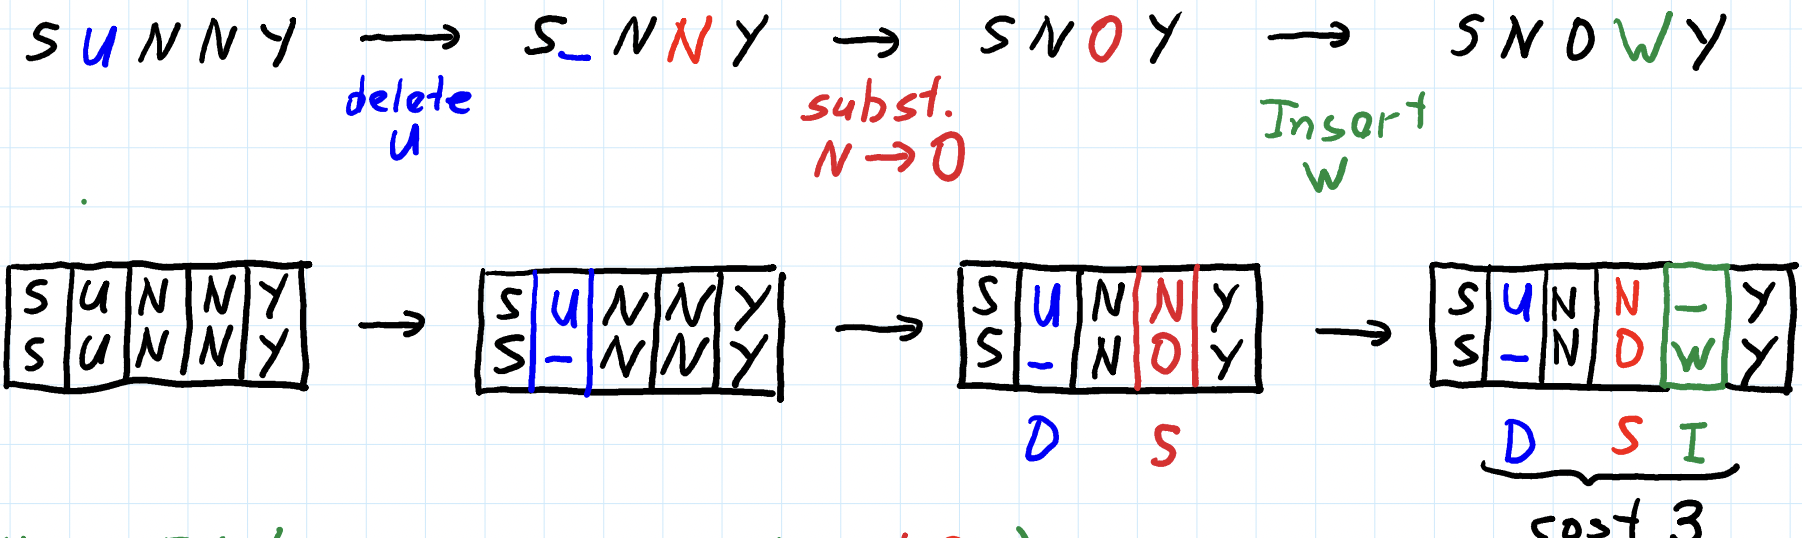 S U N N Y → S _ N N Y → S N O Y → S N O W Y
delete U
subst. N → O
Insart W
S U N N Y → S U N N Y → S U N N Y → S U N N - Y
S U N N Y S - N N Y S - N O Y S - N O W Y
D S D S I
cost 3